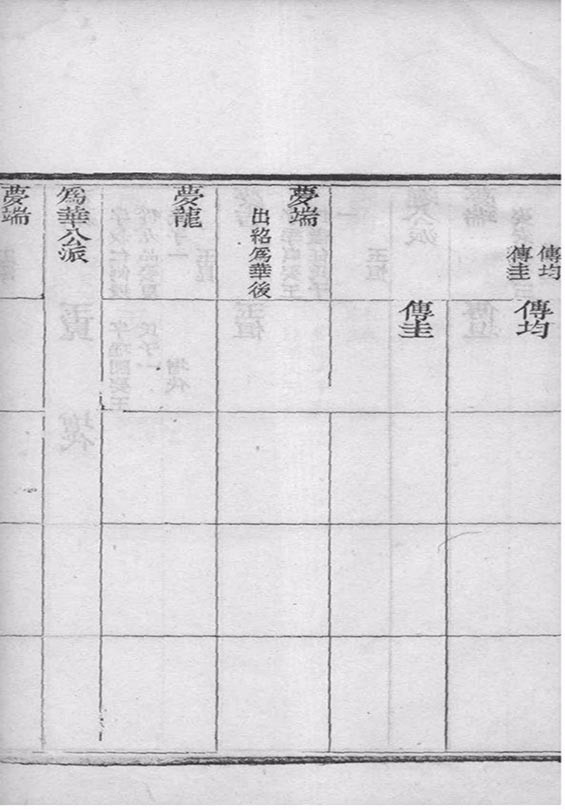 傳均
傳圭
傳均
傳圭
夢端
出紹為華後
夢龍
為華公派
夢端